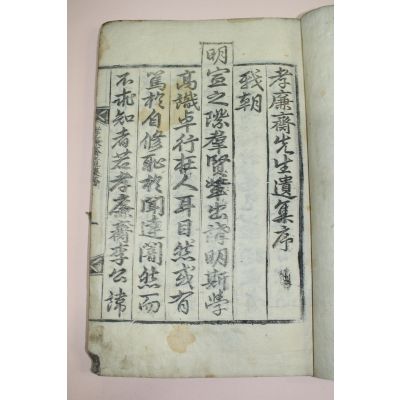 孝廉齋先生遺集序
我朝
明宣之際羣賢蔚出講明斯學
高識卓行在人耳目然或有
篤於自修恥於聞達闇然而
不求知者若孝廉齋李公諱